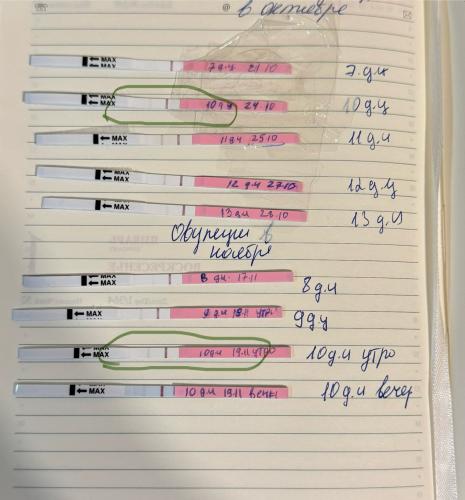 в октябре
MAX
MAX
7 дц 21.10
7 дц
MAX
MAX
10 дц 24.10
10 д.ц
MAX
11 дц 25.10
11 д.ц
MAX
MAX
12 дц 27.10
12 д.ц
MAX
MAX
13 дц 28.10
13 д.ц
Овуляции в
ноябре
ЯНВАРЬ
ВОСКРЕСЕНЬЕ
MAX
MAX
8 дц. 17.11
8 д.ц
MAX
утро
9 дц
MAX
MAX
10 дц 19.11 утро
10 д.ц утро
MAX
10 д.ц 19.11 вечер
10 д.ц вечер